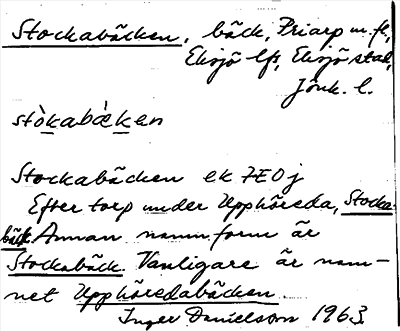 Stockabäcken, bäck, Priarp m. fl.,
Eksjö lfs, Eksjö stad,
Jönk. l.
stòkabàkan
Stockabäcken ek 7E0j
Efter torp under Upphöreda, Stocka-
bäck. Annan namnform är
Stockabäck. Vanligare är nam-
net Upphöredabäcken.
Inger Danielsson 1963